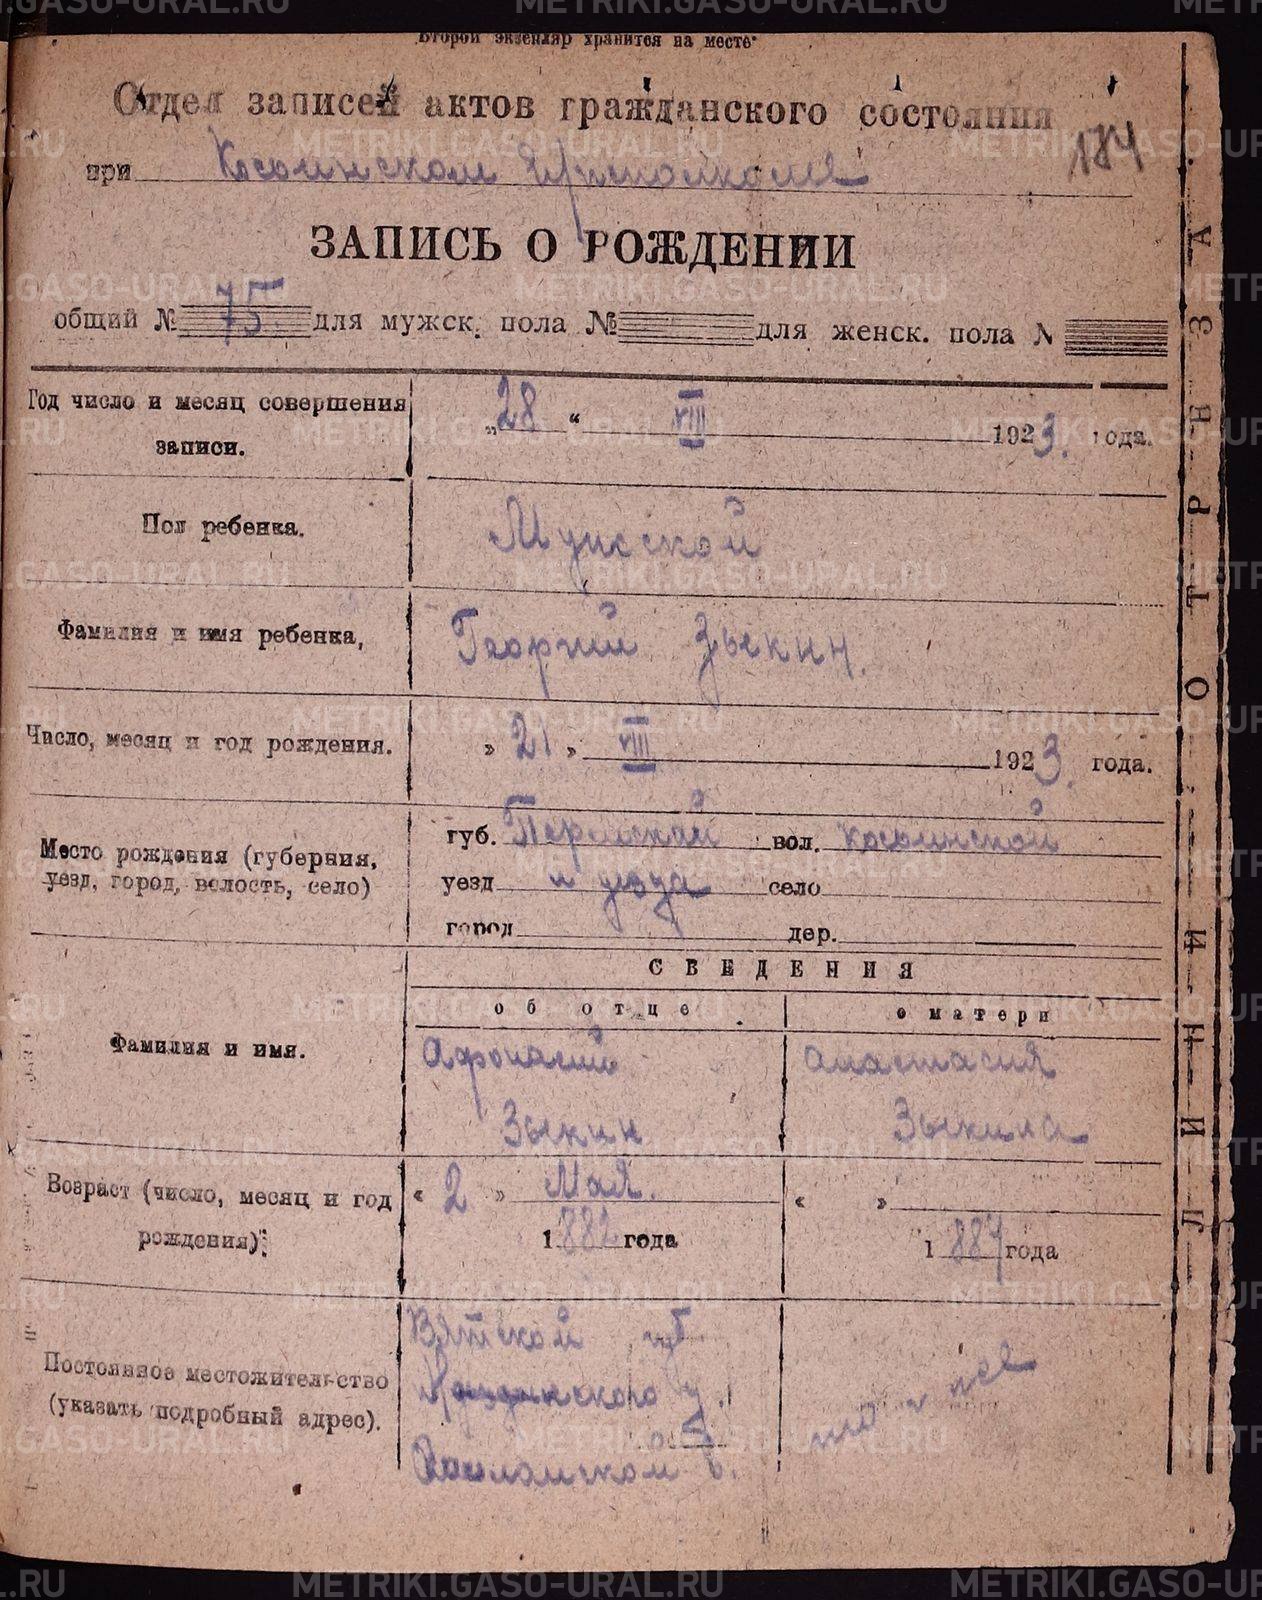 Второй экземпляр хранится на месте
Отдел записей актов гражданского состояния
при Косолинском
184
ЗАПИСЬ О РОЖДЕНИИ
общий № 75. для мужск. пола № для женск. пола №
Год число и месяц совершения записи.
„28“ VIII 1923. года.
Пол ребенка.
Мужской
Фамилия и имя ребенка,
Георгий Зыкин.
Число, месяц и год рождения.
» 21 » VIII 1923. года.
Место рождения (губерния,
уезд, город, волость, село)
губ. Пермской вол. Косолинской
уезд и уезда село
город дер.
СВЕДЕНИЯ
об отце
о матери
Фамилия и имя.
Афонасий
Зыкин
Анастасия
Зыкина
Возраст (число, месяц и год
рождения).
« 2 » Мая.
1882 года
« »
1887 года
Постоянное местожительство
(указать подробный адрес).
Вятской губ.
у.
в.
ЛИНИЯ ОТРЕЗА
METRIKI.GASO-URAL.RU